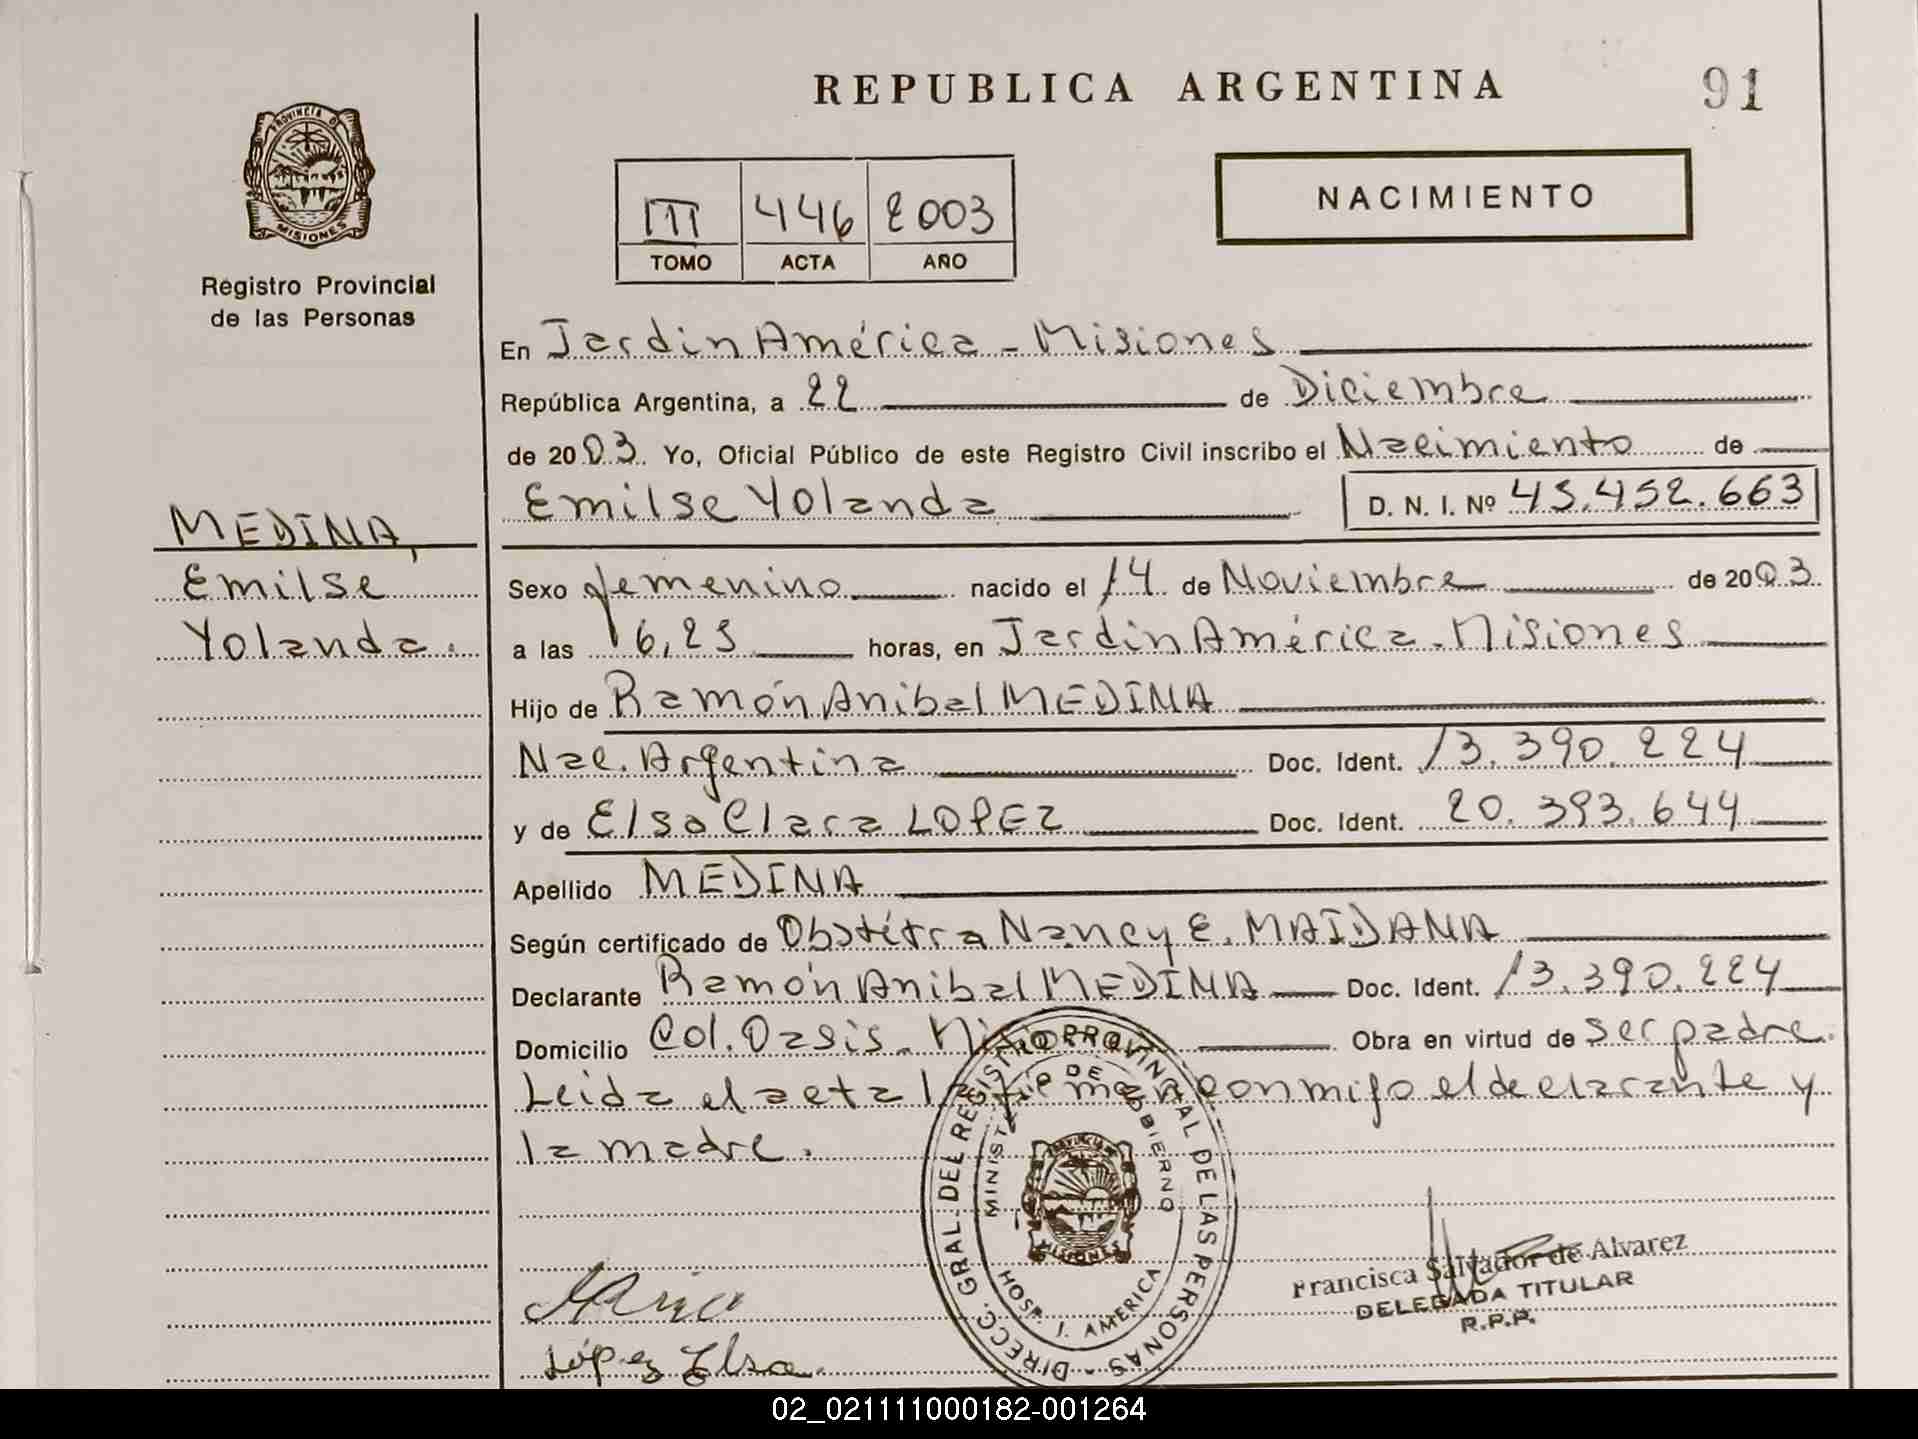 REPUBLICA ARGENTINA
91
PROVINCIA D
MISIONES
Registro Provincial
de las Personas
III 446 2003
TOMO ACTA AÑO
NACIMIENTO
En Jardin América - Misiones
República Argentina, a 22 de Diciembre
de 2003. Yo, Oficial Público de este Registro Civil inscribo el Nacimiento de
Emilse Yolanda D. N. I. Nº 45.452.663
MEDINA,
Emilse
Yolanda.
Sexo femenino nacido el 14 de Noviembre de 2003
a las 16,25 horas, en Jardin América - Misiones
Hijo de Ramón Anibal MEDINA
Nac. Argentina Doc. Ident. 13.390.224
y de Elsa Clara LOPEZ Doc. Ident. 20.393.644
Apellido MEDINA
Según certificado de Obstétra Nancy E. MAIDANA
Declarante Ramón Anibal MEDINA Doc. Ident. 13.390.224
Domicilio Col. Oasis - Obra en virtud de ser padre.
Leida el acta la firman conmigo el declarante y
la madre.
DIRECC. GRAL. DEL REGISTRO PROVINCIAL DE LAS PERSONAS
MINIST DE GOBIERNO
PROVINCIA
MISIONES
HOSP. J. AMERICA
Francisca Salvador de Alvarez
DELEGADA TITULAR
R.P.P.
López Elsa.
02_021111000182-001264